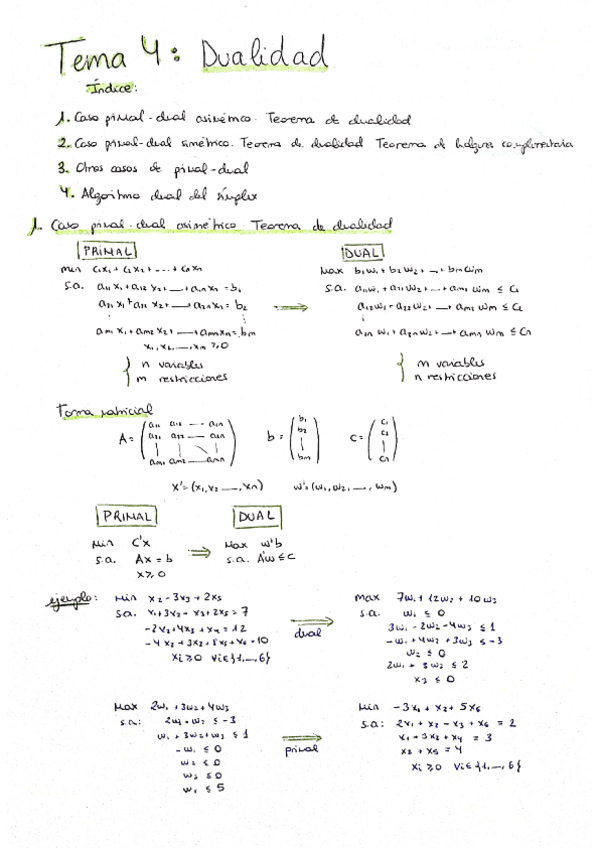 Tema 4: Dualidad
Índice:
1. Caso primal-dual asimétrico. Teorema de dualidad
2. Caso primal-dual simétrico. Teorema de dualidad Teorema de holgura complementaria
3. Otros casos de primal-dual
4. Algoritmo dual del simplex
1. Caso primal-dual asimétrico. Teorema de dualidad
PRIMAL
min c₁x₁ + c₂x₂ + ... + cₙxₙ
s.a. a₁₁x₁ + a₁₂x₂ + — + a₁ₙxₙ = b₁
a₂₁x₁ + a₂₂x₂ + — + a₂ₙxₙ = b₂
aₘ₁x₁ + aₘ₂x₂ + — + aₘₙxₙ = bₘ
x₁, x₂, —, xₙ ≥ 0
n variables
m restricciones
DUAL
Max b₁w₁ + b₂w₂ + — + bₘwₘ
s.a. a₁₁w₁ + a₂₁w₂ + — + aₘ₁wₘ ≤ c₁
a₁₂w₁ + a₂₂w₂ + — + aₘ₂wₘ ≤ c₂
a₁ₙw₁ + a₂ₙw₂ + — + aₘₙwₘ ≤ cₙ
m variables
n restricciones
Forma matricial
A = b = c =
x' = (x₁, x₂ —, xₙ) w' = (w₁, w₂, —, wₘ)
PRIMAL
Min c'x
s.a. Ax = b
x ≥ 0
DUAL
Max w'b
s.a. A'w ≤ c
ejemplo: Min x₂ - 3x₃ + 2x₅
s.a. x₁ + 3x₂ - x₃ + 2x₅ = 7
-2x₂ + 4x₃ + x₄ = 12
-4x₂ + 3x₃ + 8x₅ + x₆ = 10
xᵢ ≥ 0 ∀i∈{1, —, 6}
dual
max 7w₁ + 12w₂ + 10w₃
s.a. w₁ ≤ 0
3w₁ - 2w₂ - 4w₃ ≤ 1
-w₁ + 4w₂ + 3w₃ ≤ -3
w₂ ≤ 0
2w₁ + 8w₃ ≤ 2
x₃ ≤ 0
Max 2w₁ + 3w₂ + 4w₃
s.a: 2w₁ + w₂ ≤ -3
w₁ + 3w₂ + w₃ ≤ 1
-w₁ ≤ 0
w₂ ≤ 0
w₃ ≤ 0
w₁ ≤ 5
primal
Min -3x₁ + x₂ + 5x₆
s.a: 2x₁ + x₂ - x₃ + x₆ = 2
x₁ + 3x₂ + x₄ = 3
x₂ + x₅ = 4
xᵢ ≥ 0 ∀i∈{1, —, 6}